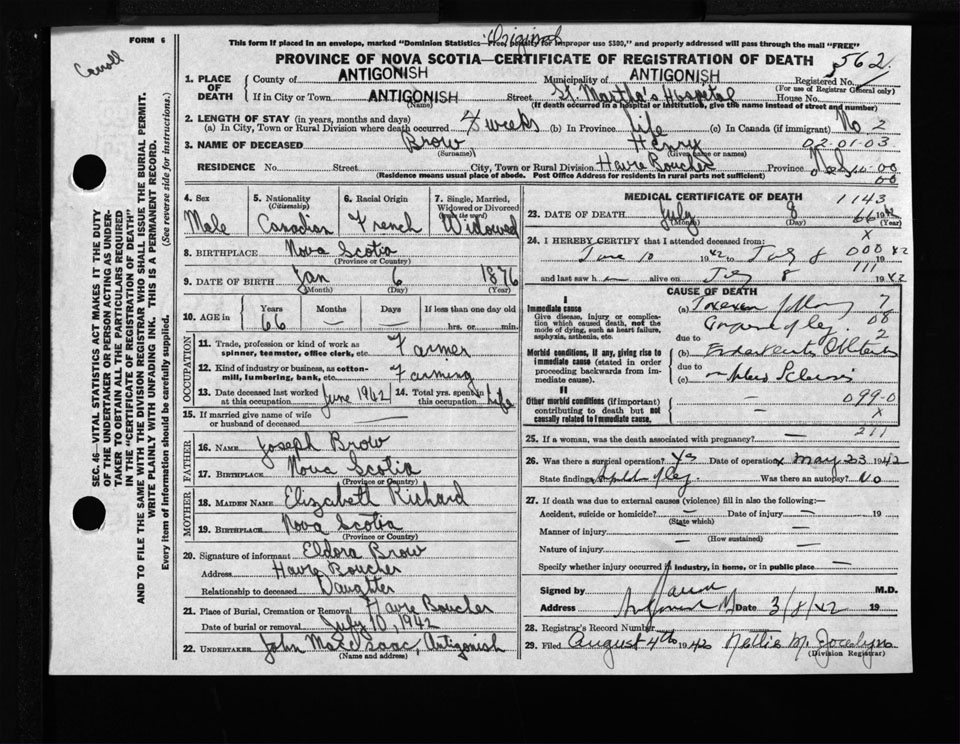 FORM 6
Original
This form if placed in an envelope, marked "Dominion Statistics—Free, penalty for improper use $300," and properly addressed will pass through the mail "FREE"
PROVINCE OF NOVA SCOTIA—CERTIFICATE OF REGISTRATION OF DEATH
562
1. PLACE OF DEATH County of ANTIGONISH Municipality of ANTIGONISH Registered No.
(For use of Registrar General only)
If in City or Town ANTIGONISH Street St. Martha's Hospital House No.
(Name) (If death occurred in a hospital or institution, give the name instead of street and number)
2. LENGTH OF STAY (in years, months and days)
(a) In City, Town or Rural Division where death occurred 4 weeks (b) In Province life (c) In Canada (if immigrant) No 2
3. NAME OF DECEASED Brow Henry 02-01-03
(Surname) (Given name or names)
RESIDENCE No. Street City, Town or Rural Division Havre Boucher Province
(Residence means usual place of abode. Post Office Address for residents in rural parts not sufficient) 00
4. Sex Male
5. Nationality (Citizenship) Canadian
6. Racial Origin French
7. Single, Married, Widowed or Divorced Widowed
8. BIRTHPLACE Nova Scotia
(Province or Country)
9. DATE OF BIRTH Jan 6 1876
(Month) (Day) (Year)
10. AGE in Years Months Days If less than one day old
66 — — hrs. or min.
OCCUPATION
11. Trade, profession or kind of work as spinner, teamster, office clerk, etc. Farmer
12. Kind of industry or business, as cotton-mill, lumbering, bank, etc. Farming
13. Date deceased last worked at this occupation June 1942 14. Total yrs. spent in this occupation Life
15. If married give name of wife or husband of deceased —
FATHER
16. NAME Joseph Brow
17. BIRTHPLACE Nova Scotia
(Province or Country)
MOTHER
18. MAIDEN NAME Elizabeth Richard
19. BIRTHPLACE Nova Scotia
(Province or Country)
20. Signature of informant Eldora Brow
Address Havre Boucher
Relationship to deceased Daughter
21. Place of Burial, Cremation or Removal Havre Boucher
Date of burial or removal July 10, 1942
22. UNDERTAKER John MacIsaac, Antigonish
(Name and address)
MEDICAL CERTIFICATE OF DEATH 1143
23. DATE OF DEATH July 8 1942
(Month) (Day) (Year)
66
X
24. I HEREBY CERTIFY that I attended deceased from:
June 10 1942 to July 8 1942
000
111
and last saw h alive on July 8 1942
CAUSE OF DEATH
I
Immediate cause (a)
Give disease, injury or complication which caused death, not the mode of dying, such as heart failure, asphyxia, asthenia, etc.
7
08
due to 2
Morbid conditions, if any, giving rise to immediate cause (stated in order proceeding backwards from immediate cause). (b)
due to
(c)
II
Other morbid conditions (if important) contributing to death but not causally related to immediate cause. 099-0
X
211
25. If a woman, was the death associated with pregnancy? —
26. Was there a surgical operation? Yes Date of operation May 23 1942
State findings Was there an autopsy? No
27. If death was due to external causes (violence) fill in also the following:—
Accident, suicide or homicide? — Date of injury — 19
(State which)
Manner of injury —
(How sustained)
Nature of injury —
Specify whether injury occurred in industry, in home, or in public place —
Signed by M.D.
Address Antigonish Date 3/8/42 19
28. Registrar's Record Number
29. Filed August 4th 1942 Nellie M. Jocelyn
(Division Registrar)
SEC. 46—VITAL STATISTICS ACT MAKES IT THE DUTY OF THE UNDERTAKER OR PERSON ACTING AS UNDERTAKER TO OBTAIN ALL THE PARTICULARS REQUIRED IN THE "CERTIFICATE OF REGISTRATION OF DEATH" AND TO FILE THE SAME WITH THE DIVISION REGISTRAR WHO SHALL ISSUE THE BURIAL PERMIT.
WRITE PLAINLY WITH UNFADING INK. THIS IS A PERMANENT RECORD.
Every item of information should be carefully supplied. (See reverse side for instructions.)